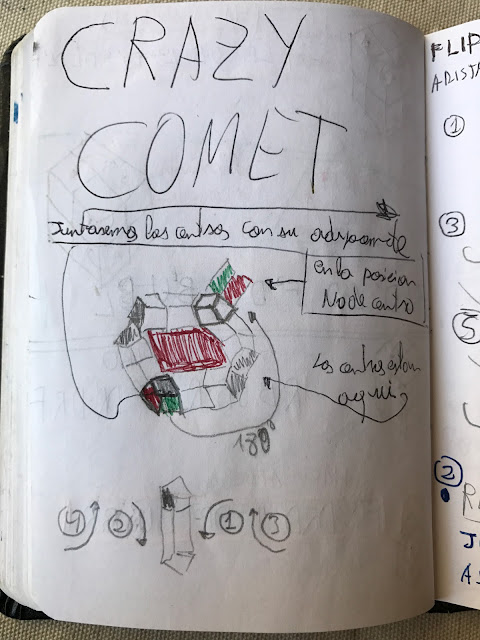 CRAZY
COMET
Juntaremos los centros con su adyacente
en la posicion
No de centro
Los centros estan
aqui
180º
4 2 1 3
FLIP
ARISTA
1
3
5
2
R
J
A